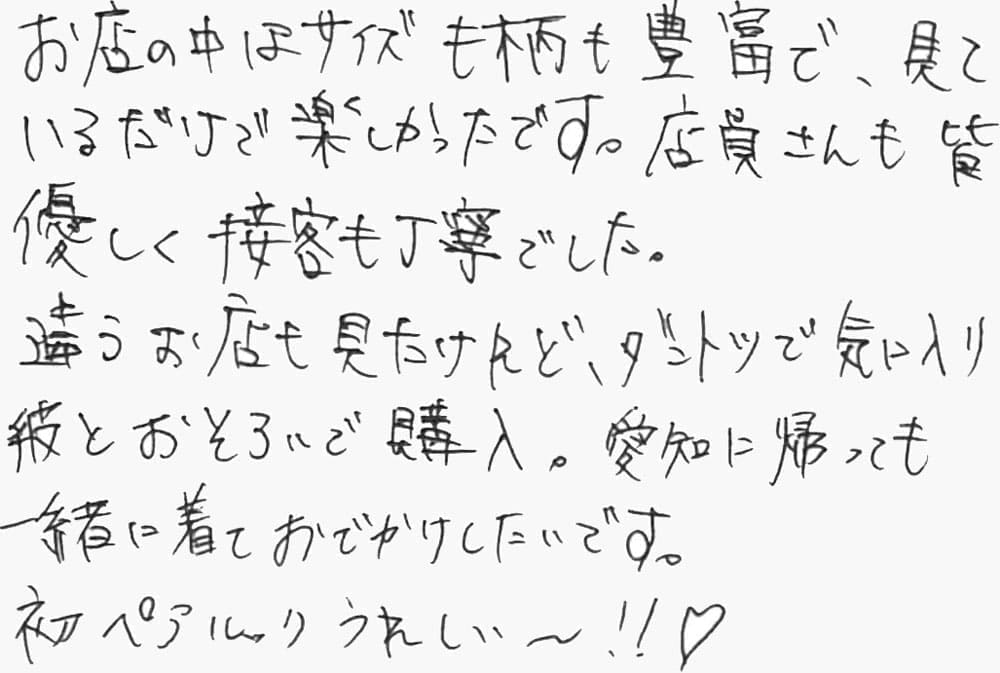 お店の中はサイズも柄も豊富で、見て
いるだけで楽しかったです。店員さんも皆
優しく接客も丁寧でした。
違うお店も見たけれど、ダントツで気に入り
彼とおそろいで購入。愛知に帰っても
一緒に着ておでかけしたいです。
初ペアルックうれしい〜!!♡